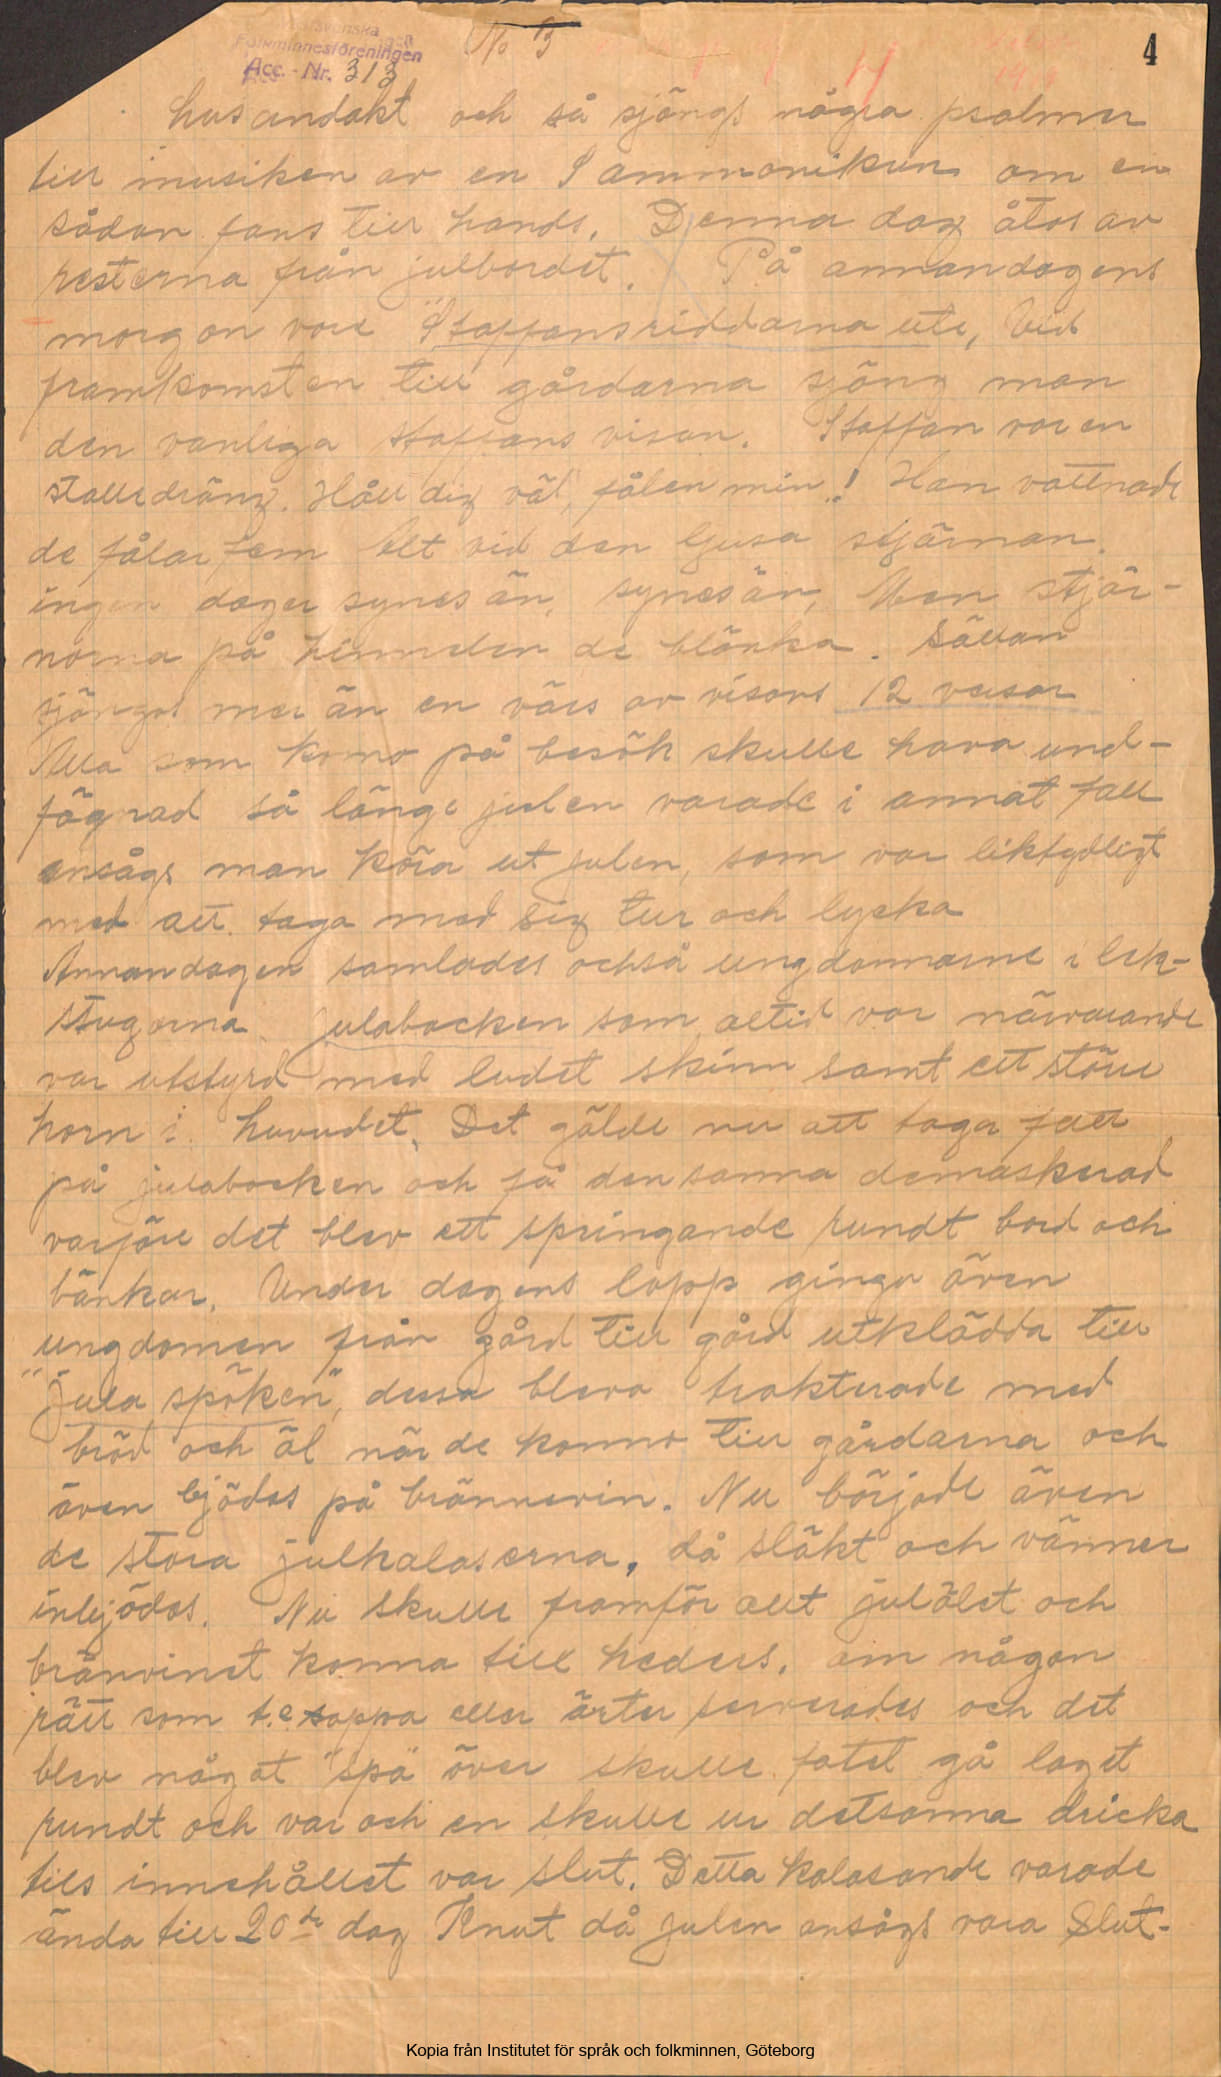 Folkminnesföreningen
Acc. - Nr. 313
No 3
4
husandakt och så sjöngs några psalmer
till musiken av en Psammonikun om en
sådan fans till hands. Denna dag åtos av
resterna från julbordet. På annandagens
morgon vore "Staffansriddarna ute, Vid
framkomsten till gårdarna sjöng man
den vanliga staffans visan. Staffan var en
stalledräng. Håll dig väl, fålen min! Han vattnade
de fålar fem Alt vid den ljusa stjärnan.
ingen dager synes än, synes än, Men stjär-
norna på himmelen de blänka. Sällan
sjöngos mer än en värs av visans 12 versar
Alla som komo på besök skulle hava und-
fägnad så länge julen varade i annat fall
ansågs man köra ut julen, som var liktydligt
med att taga med sig tur och lycka
Annandagen samlades också ungdommarne i lek-
stugorna julabocken som altid var närvarande
var utstyrd med ludet skinn samt ett störe
horn i huvudet. Det gälde nu att taga fatt
på julabocken och få densamma demaskerad
varföre det blev ett springande rundt bord och
bänkar. Under dagens lopp gingo även
ungdomen från gård till gård utklädda till
"Jula spöken", dessa blevo trakterade med
bröd och öl när de kommo till gårdarna och
även bjödos på brännevin. Nu började även
de stora julkalaserna, då släkt och vänner
inbjödos. Nu skulle framför allt julölet och
bränvinet komma till heders. om någon
rätt som t.e soppa eller ärter serverades och det
blev något "spa" över skulle fatet gå laget
rundt och var och en skulle ur detsamma dricka
tils innehållet var slut. Detta kalasande varade
ända till 20de dag Knut då julen ansågs vara Slut-
Kopia från Institutet för språk och folkminnen, Göteborg